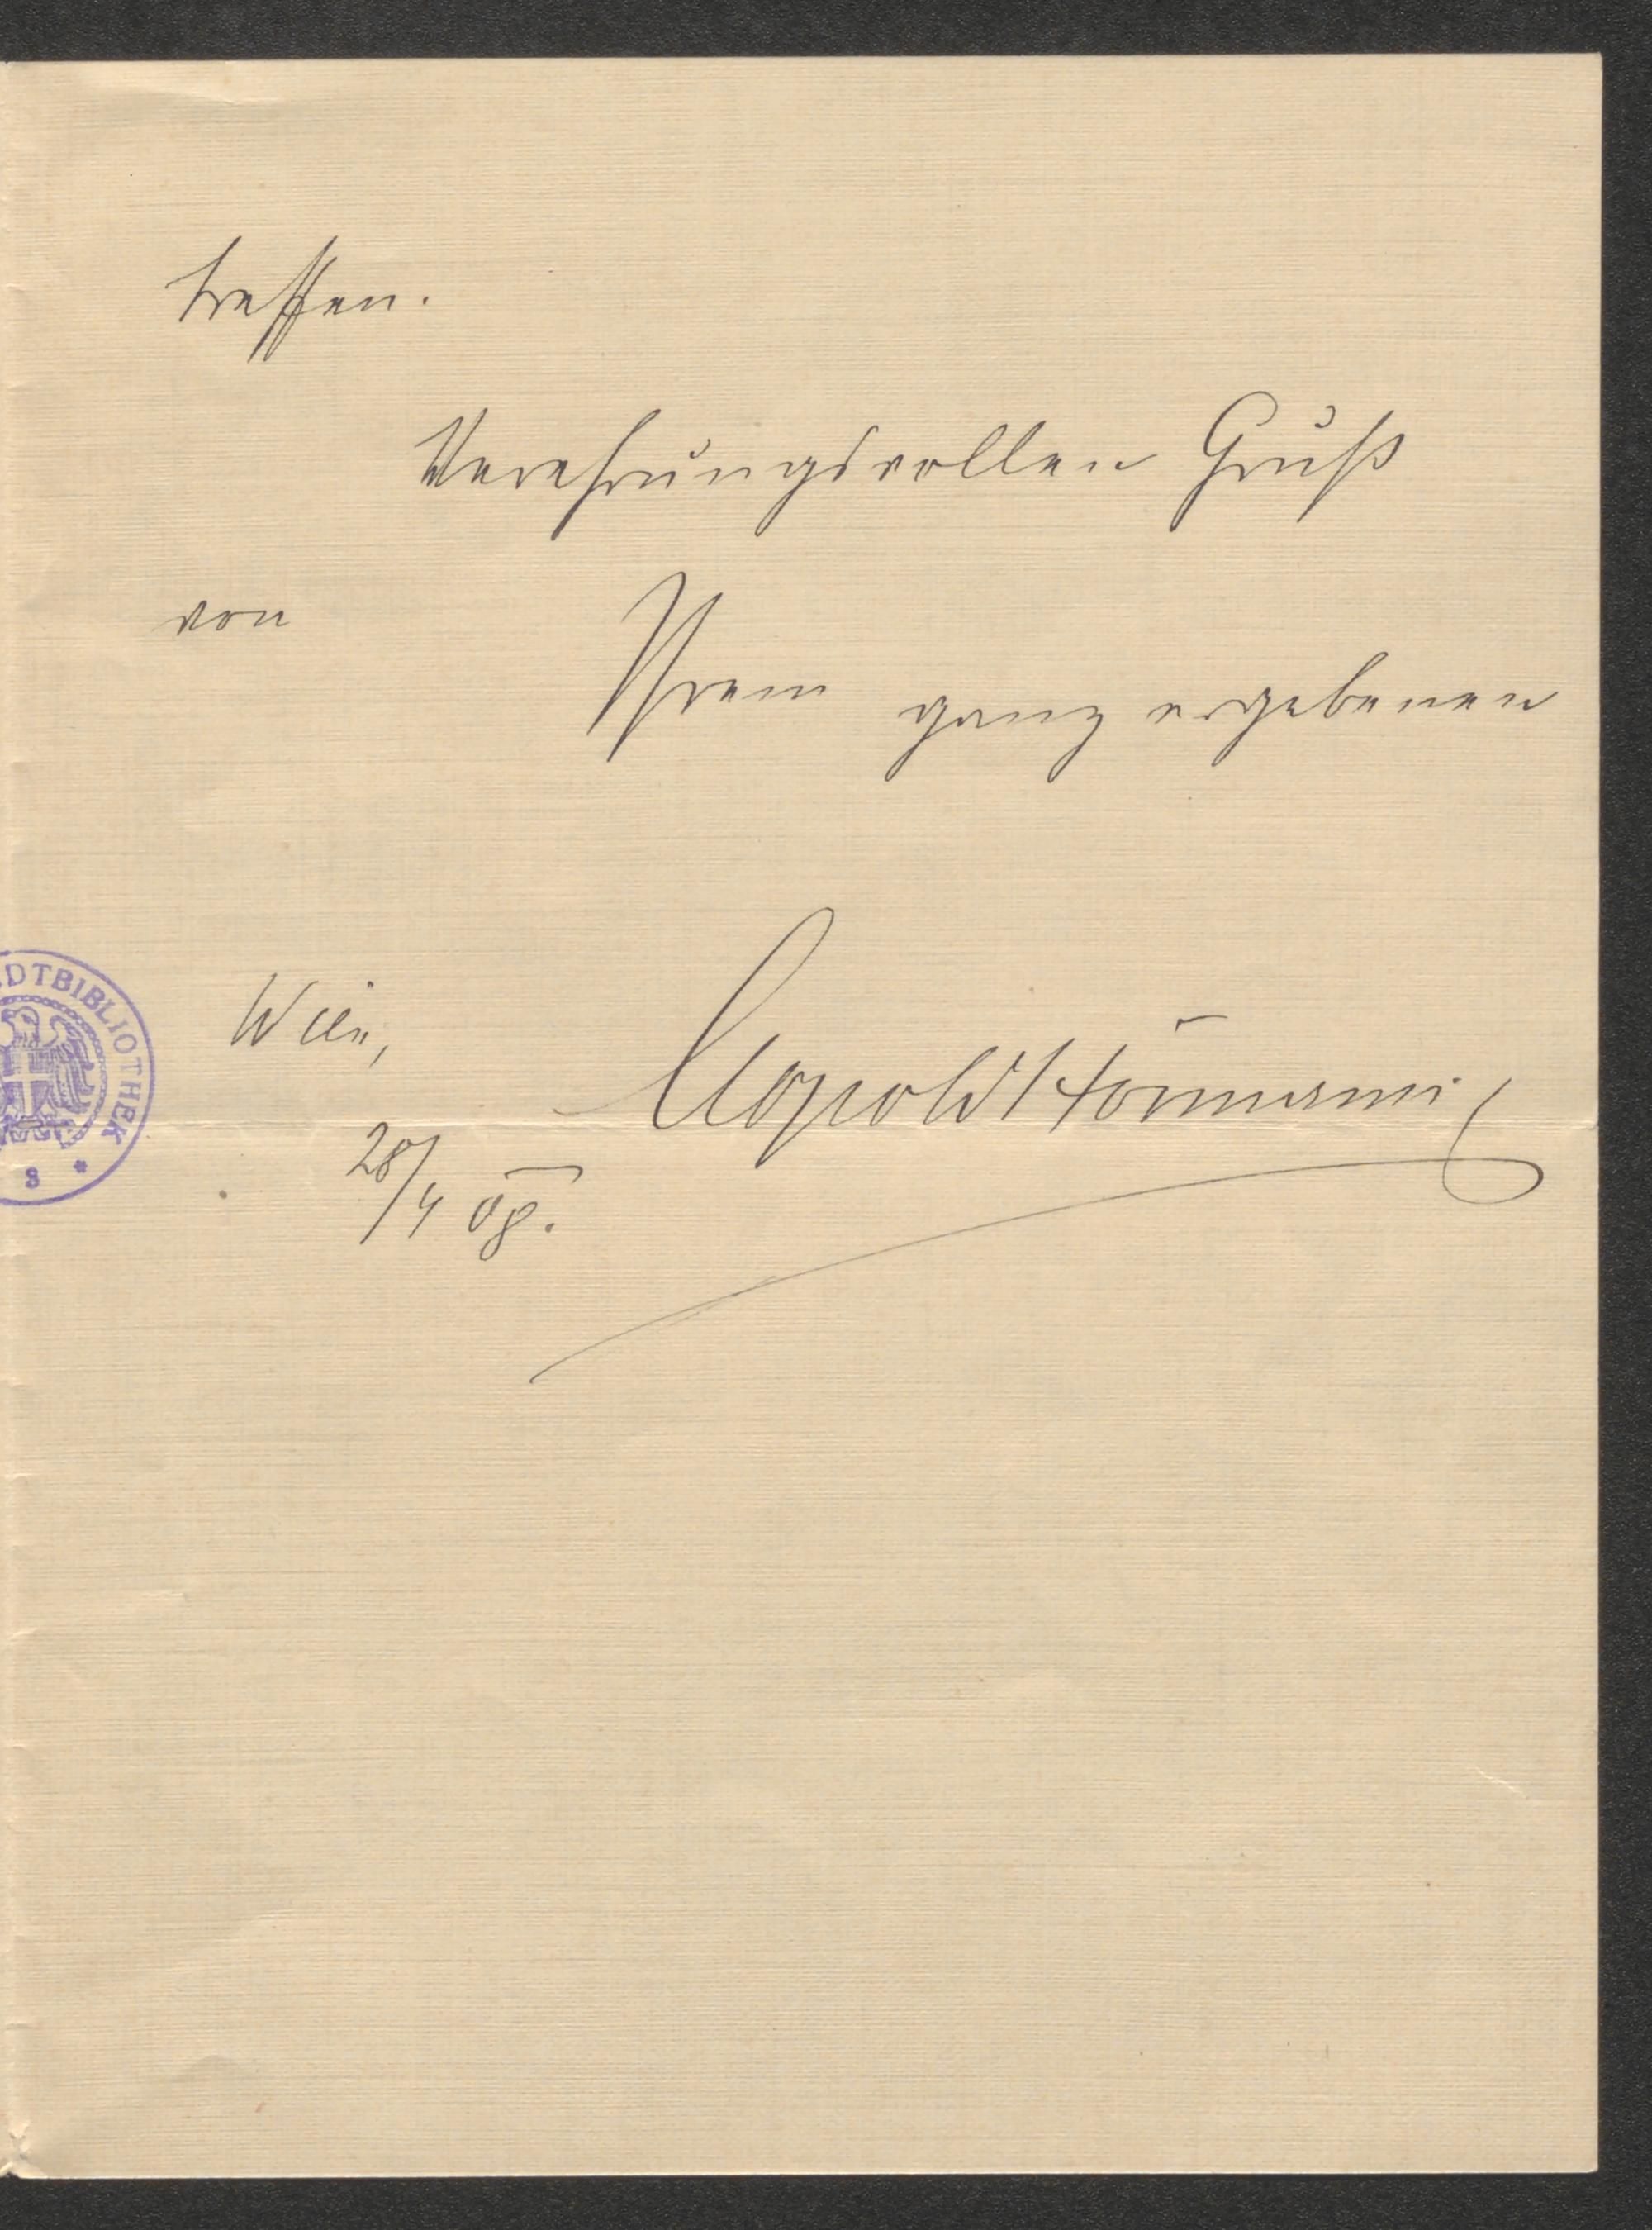 treffen.
Verehrungsvollen Gruß
von Ihrem ganz ergebenen
Leopold Hörmann
Wien,
28/4 08.
DTBIBLIOTHEK